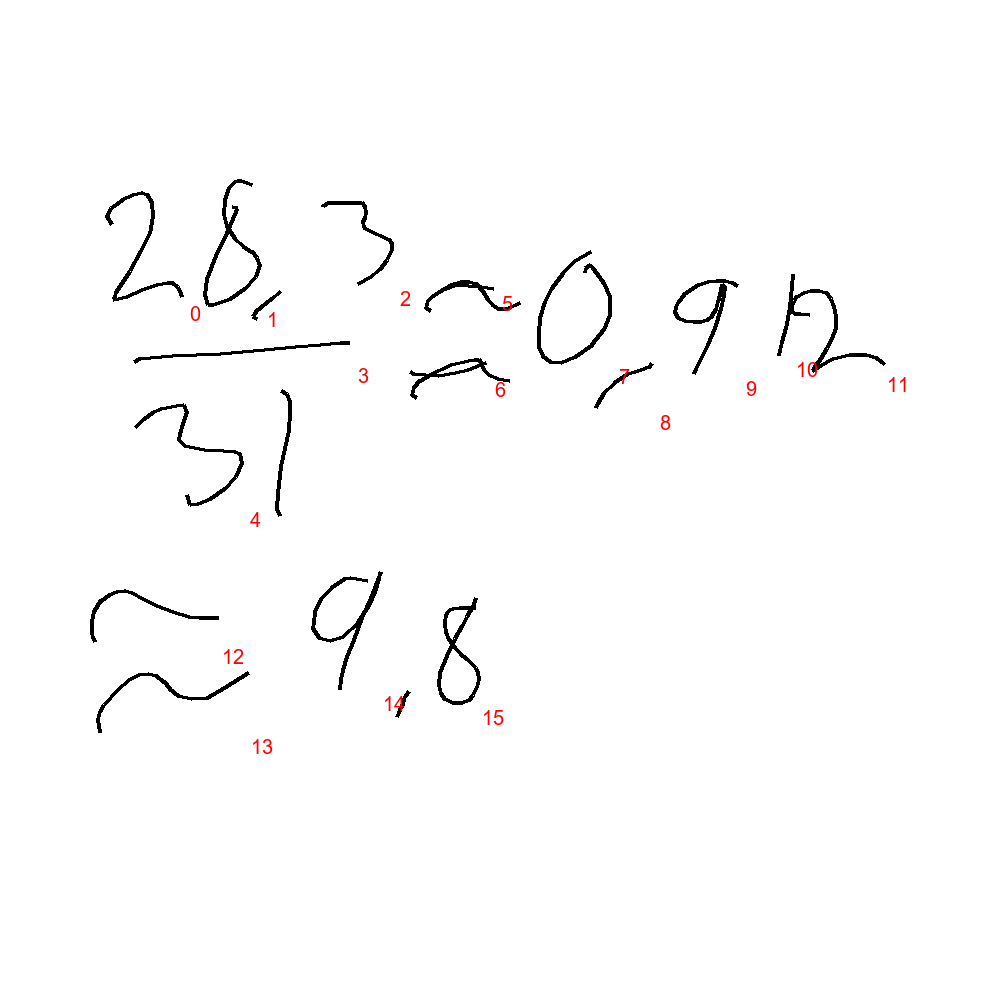 28,3
31
≈ 0,912
≈ 9,8
0 1 2 3 4 5 6 7 8 9 10 11 12 13 14 15